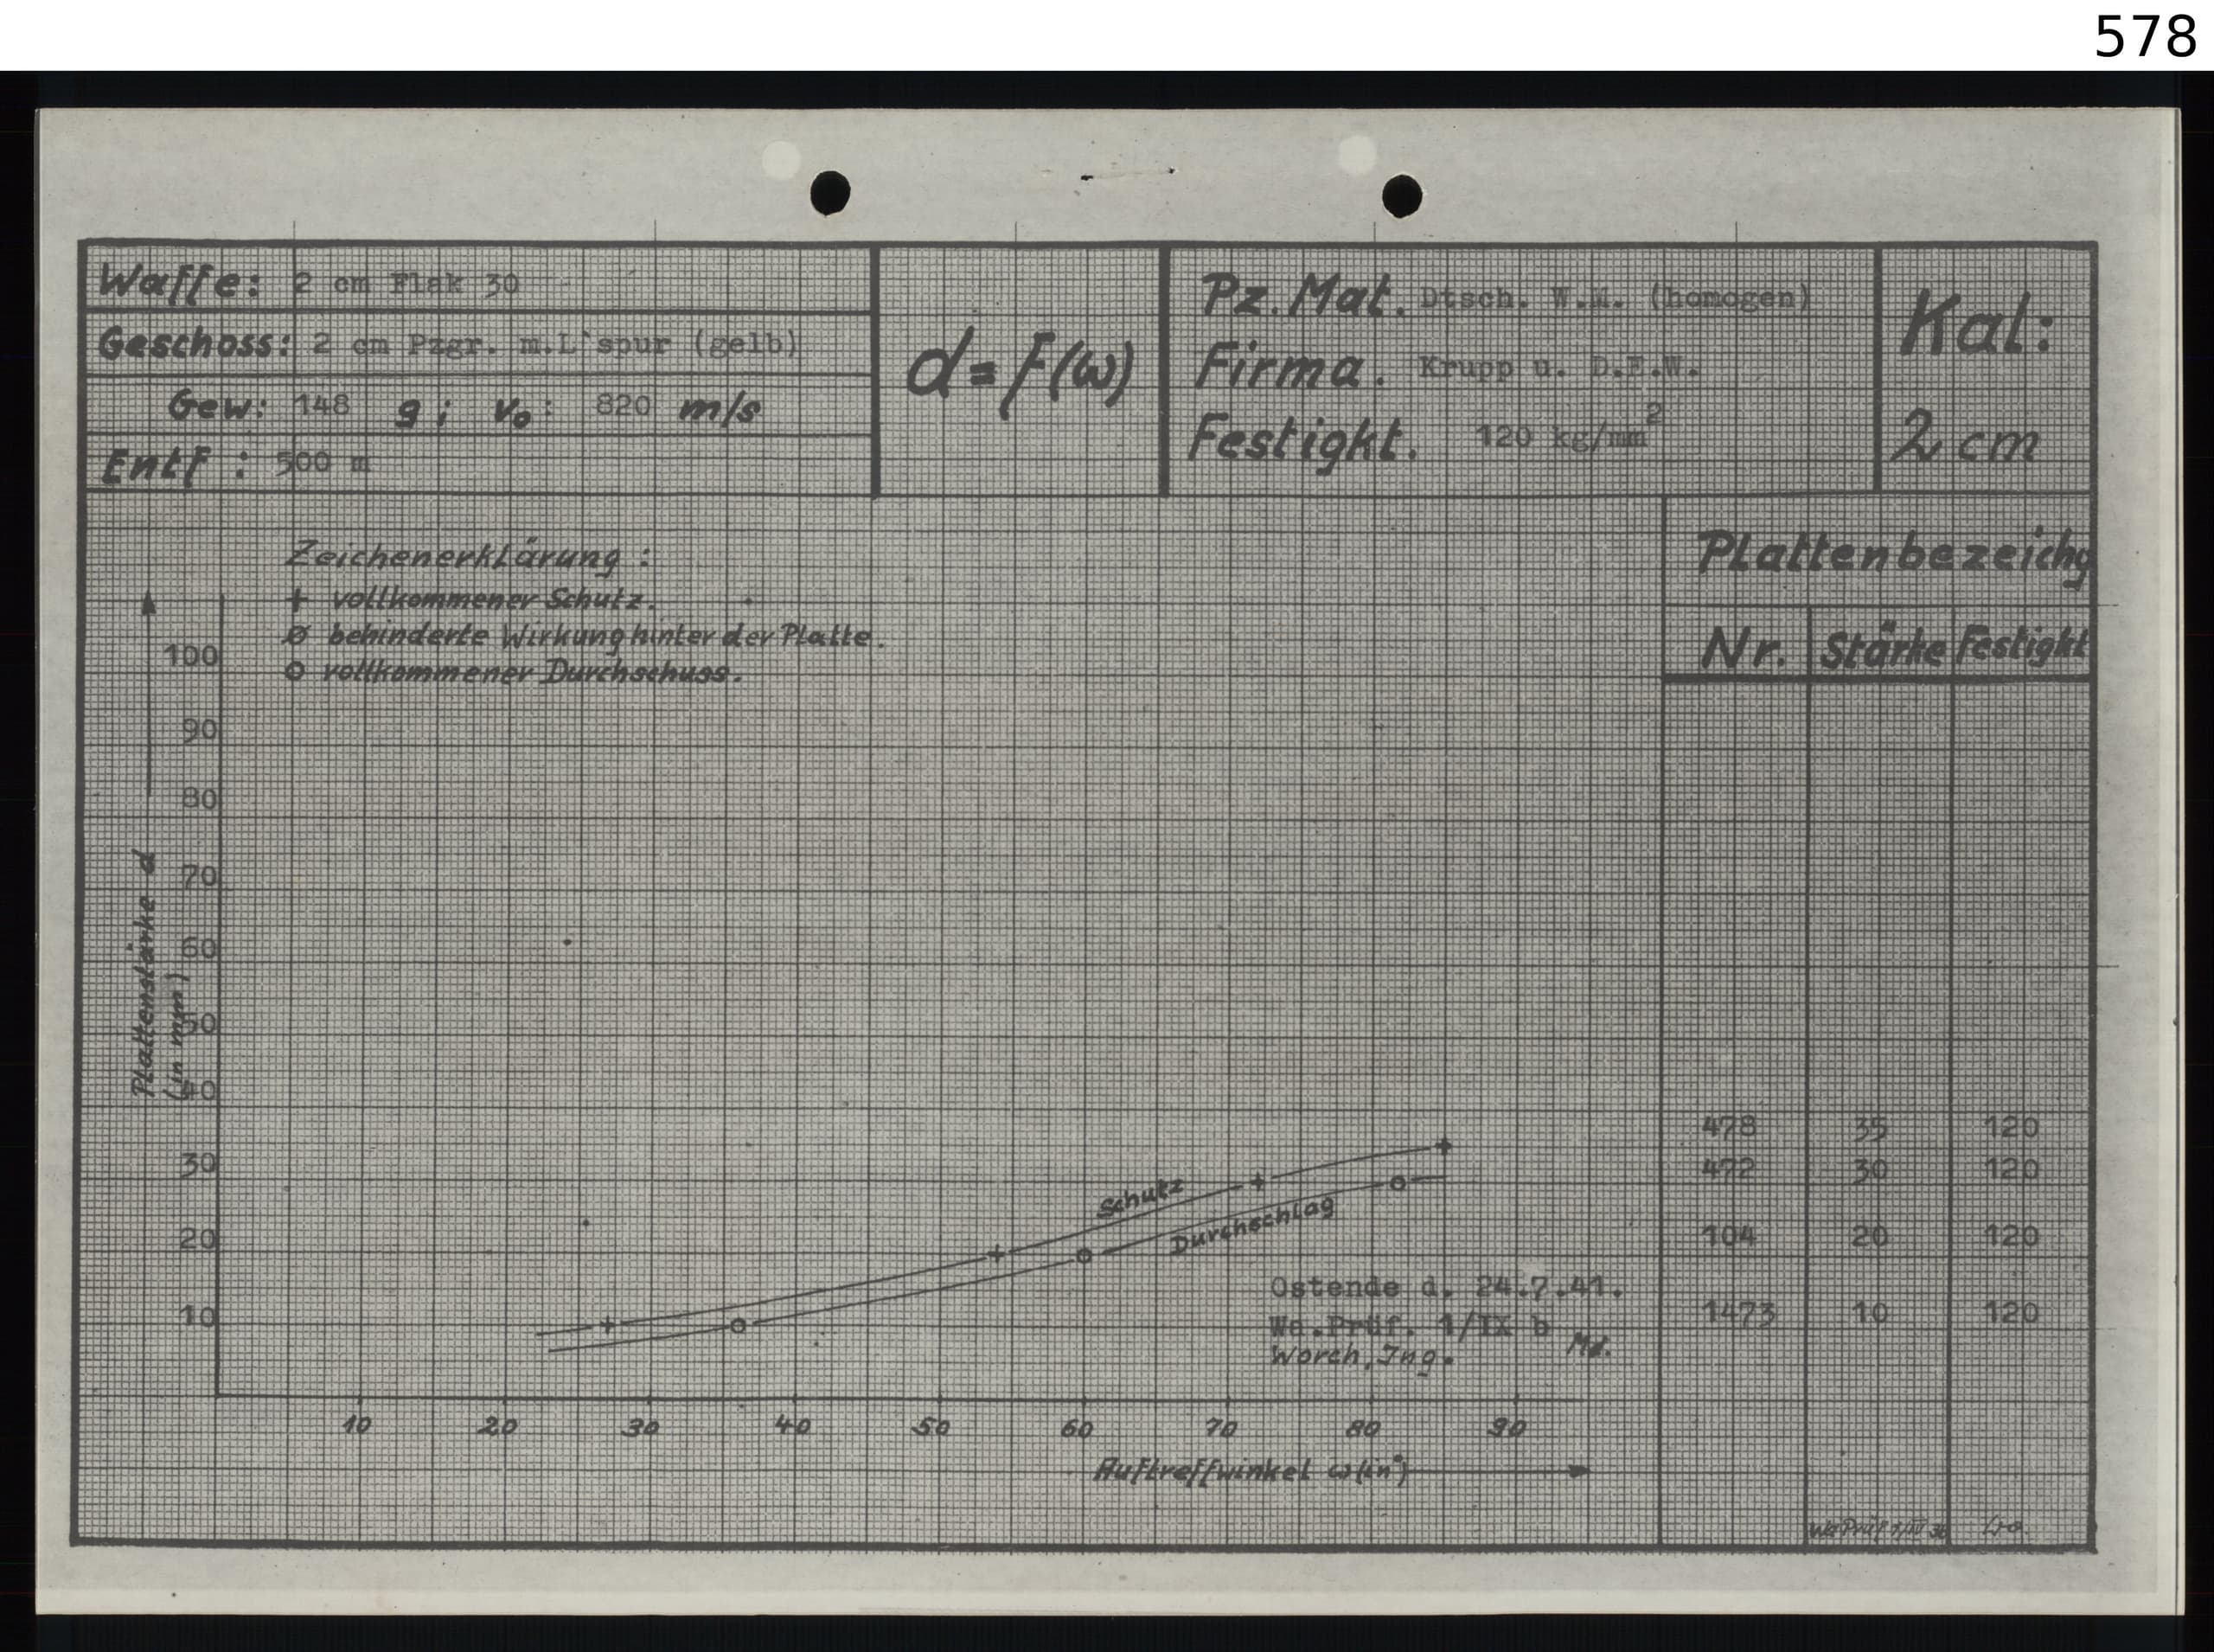 578
Waffe: 2 cm Flak 30
Geschoss: 2 cm Pzgr. m.L'spur (gelb)
Gew: 148 g; v₀: 820 m/s
Entf : 500 m
d = f(ω)
Pz. Mat. Dtsch. W.M. (homogen)
Firma. Krupp u. D.E.W.
Festigkt. 120 kg/mm²
Kal:
2 cm
Zeichenerklärung :
+ vollkommener Schutz.
ø behinderte Wirkung hinter der Platte.
o vollkommener Durchschuss.
Plattenbezeichg
Nr. Stärke Festigkt
478 35 120
472 30 120
104 20 120
1473 10 120
Plattenstärke d
(in mm)
100
90
80
70
60
50
40
30
20
10
Schutz
Durchschlag
Ostende d. 24.7.41.
Wa.Prüf. 1/IX b
Worch, Ing. Md.
10 20 30 40 50 60 70 80 90
Auftreffwinkel ω (in°)
Wa Prüf